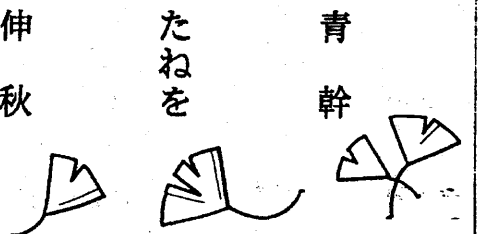 青幹
たねを
伸秋